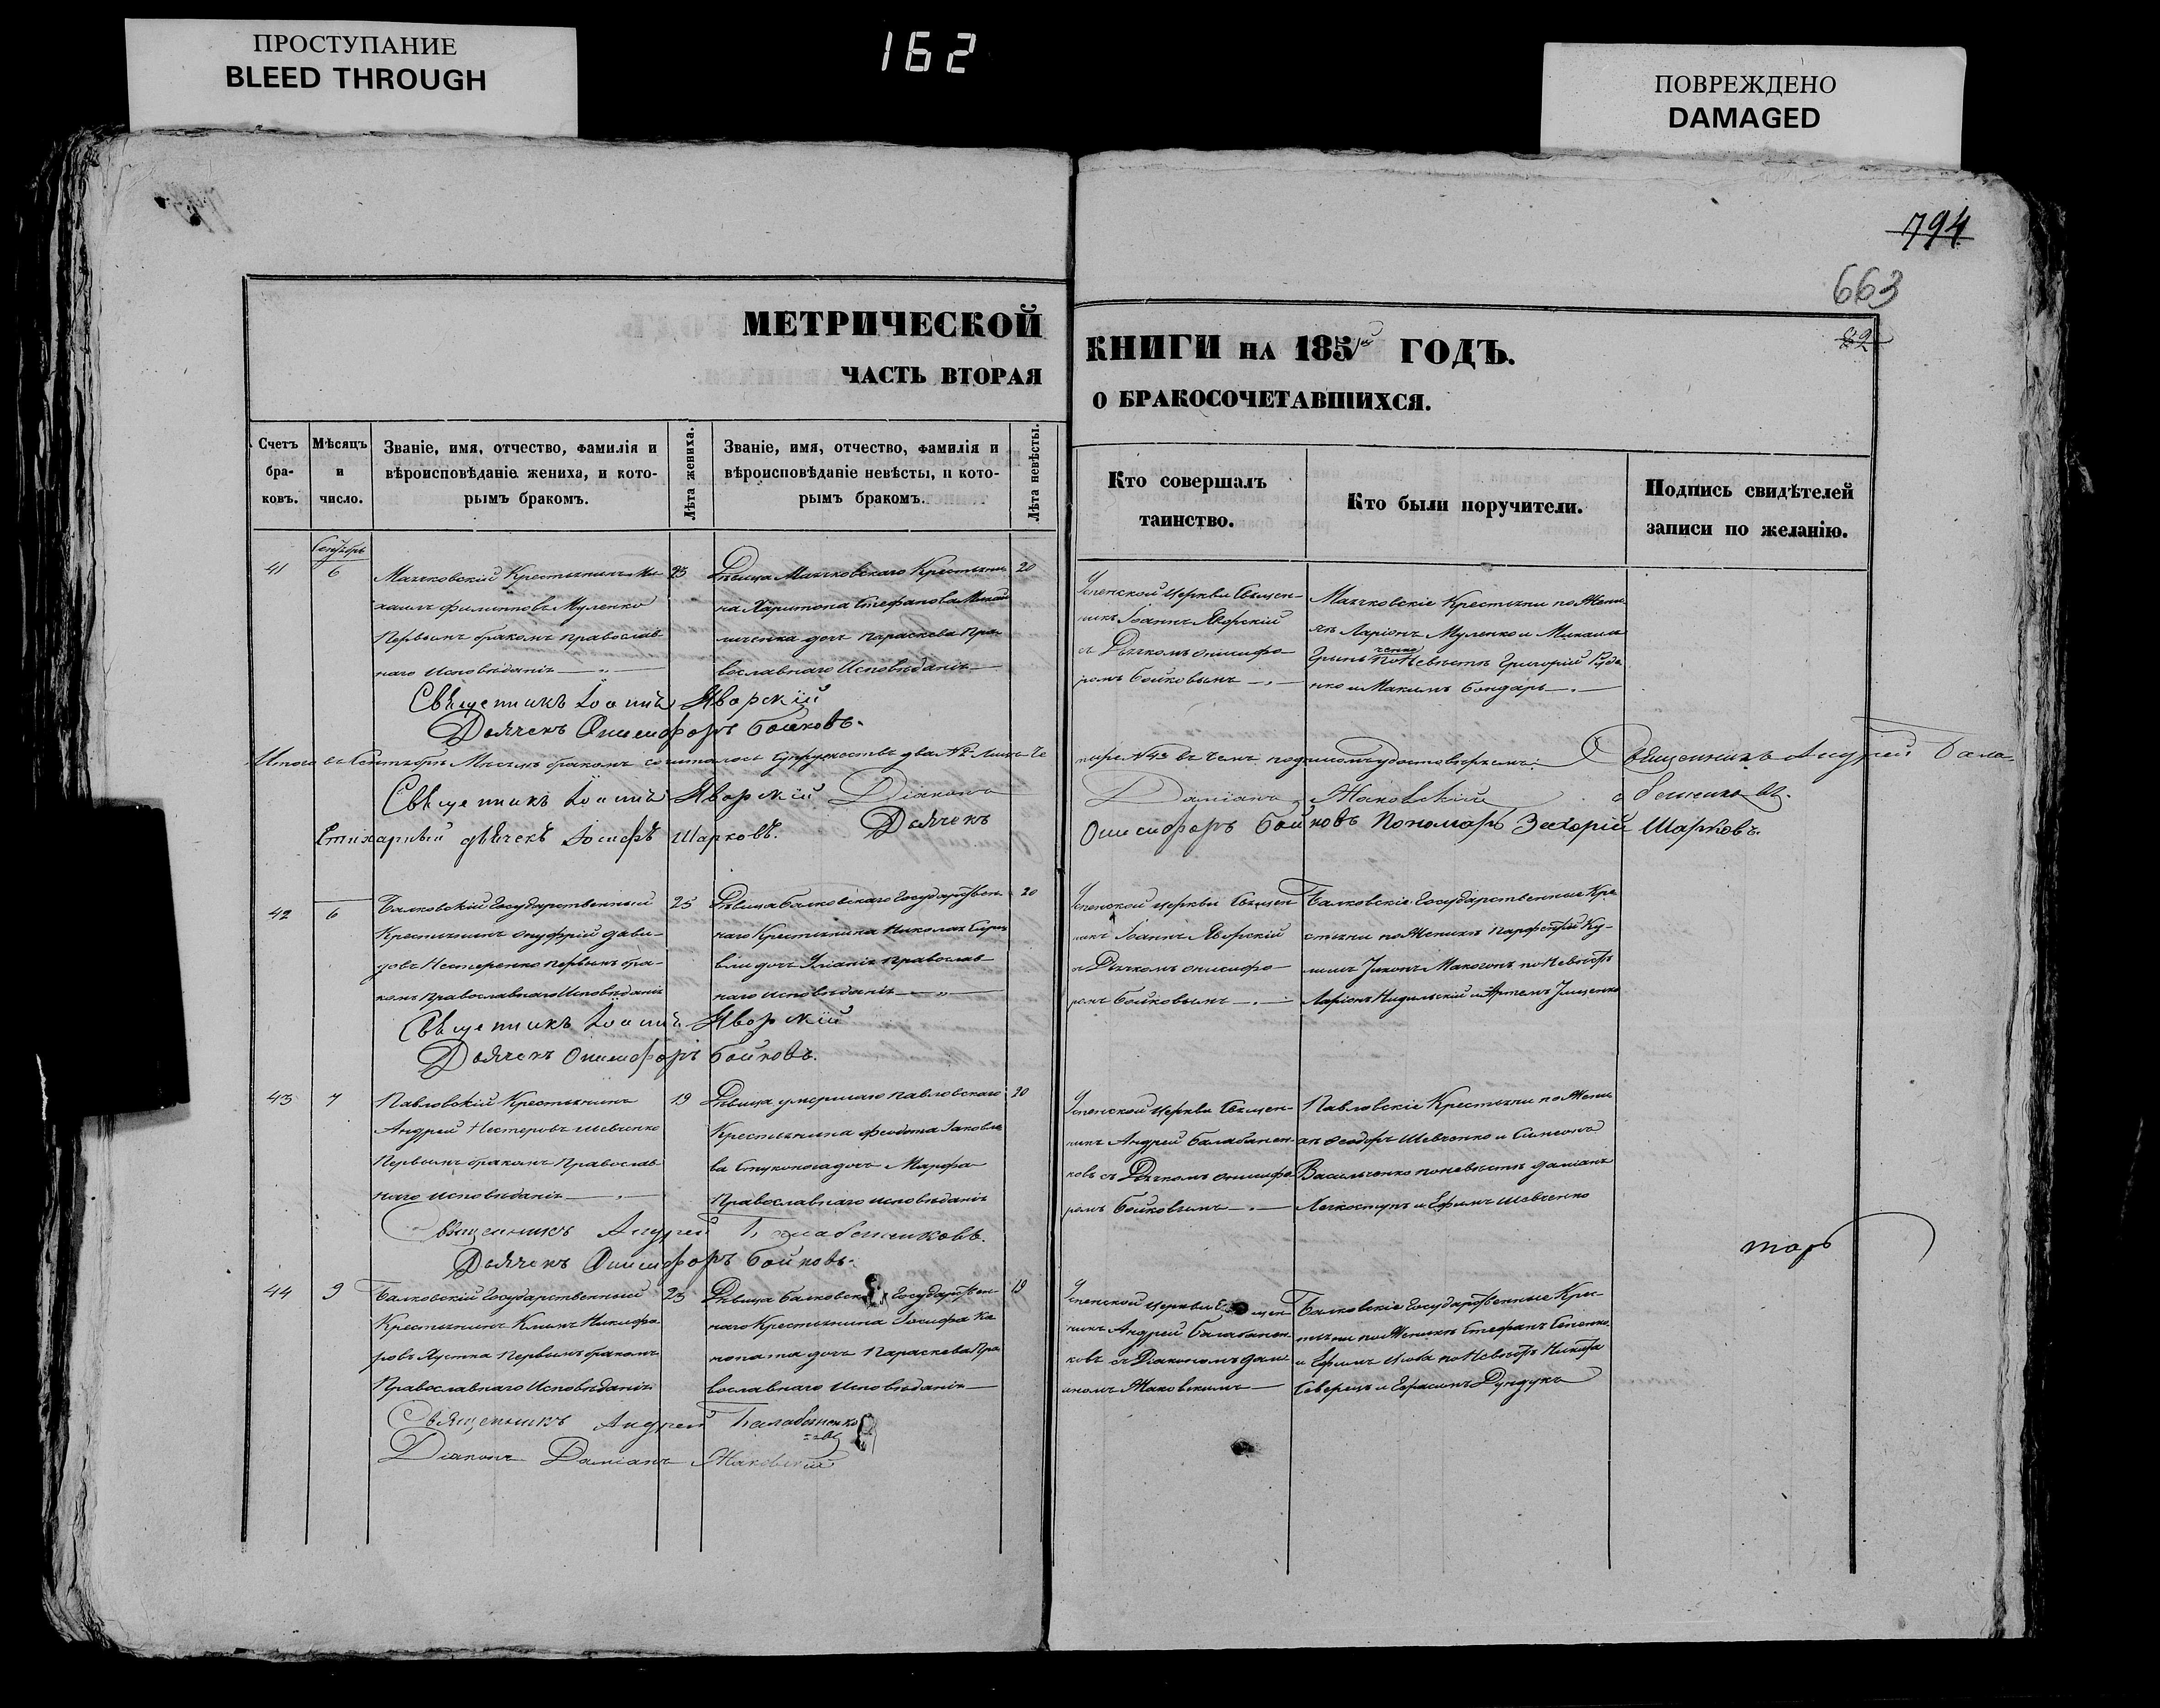 ПРОСТУПАНИЕ
BLEED THROUGH
162
ПОВРЕЖДЕНО
DAMAGED
794
663
82
МЕТРИЧЕСКОЙ
КНИГИ НА 185 ГОДЪ.
ЧАСТЬ ВТОРАЯ
О БРАКОСОЧЕТАВШИХСЯ.
Счетъ бра-ковъ.
Мѣсяцъ и число.
Званіе, имя, отчество, фамилія и вѣроисповѣданіе жениха, и кото-рымъ бракомъ.
Лѣта жениха.
Званіе, имя, отчество, фамилія и вѣроисповѣданіе невѣсты, и кото-рымъ бракомъ.
Лѣта невѣсты.
Кто совершалъ таинство.
Кто были поручители.
Подпись свидѣтелей записи по желанію.
Сентябрь
41
6
Крестьянинъ Ми-
хаилъ Филиповъ Муленко
Первымъ бракомъ православ
наго Исповѣданія
25
Дѣвица Крестьяни
на Харитона Стефанова
дочь Параскева Пра-
вославнаго Исповѣданія
20
Успенской церкви Священ-
никъ Іоаннъ Яворскій
съ Дьячкомъ Онисифо-
ромъ Бойковымъ
Крестьяни по Жени
хѣ Ларіонъ Муленко и
по Невѣстѣ Григорій Руде
нко и Максимъ Бондарь
Священникъ Іоаннъ Яворскій
Дьячекъ Онисифоръ Бойковъ.
Итого въ Сентябрѣ Мѣсяцѣ бракомъ сочеталось Супружествъ два №2 Лицъ Че
тыре №4 въ чемъ подписомъ удостовѣряемъ: Священникъ Андрей Бала-
бененковъ.
Священникъ Іоаннъ Яворскій Діаконъ
Даміанъ Жаковскій
Стихарный дьячекъ Іосифъ Шарковъ. Дьячекъ
Онисифоръ Бойковъ Пономарь Захарій Шарковъ.
42
6
Балковскій Государственный
Крестьянинъ Онуфрій Дави-
довъ Нестеренко первымъ бра-
комъ Православнаго Исповѣданія
25
Дѣвица Балковскаго Государствен-
наго Крестьянина Николая
дочь Уліанія Православ
наго Исповѣданія
20
Успенской церкви Священ
никъ Іоаннъ Яворскій
съ Дьячкомъ Онисифо-
ромъ Бойковымъ
Балковскіе Государственные Кре
стьяни по Женихѣ
Макогонъ по Невѣстѣ
Ларіонъ и Артемъ Ищенко
Священникъ Іоаннъ Яворскій
Дьячекъ Онисифоръ Бойковъ.
43
7
Павловскій Крестьянинъ
Андрей Нестеровъ Шевченко
Первымъ бракомъ Православ
наго Исповѣданія
19
Дѣвица умершаго Павловскаго
Крестьянина Феодота Іаковле
ва дочь Марфа
Православнаго исповѣданія
20
Успенской церкви Священ-
никъ Андрей Балабанен-
ковъ съ Дьячкомъ Онисифо
ромъ Бойковымъ
Павловскіе Крестьяни по Жени
хѣ Феодоръ Шевченко и Симеонъ
Васильченко по невѣстѣ Даміанъ
Легкоступъ и Ефимъ Шевченко
Священникъ Андрей Балабаненковъ.
Дьячекъ Онисифоръ Бойковъ.
44
9
Балковскій Государственный
Крестьянинъ Климъ Никифо
ровъ Первымъ бракомъ
Православнаго Исповѣданія
25
Дѣвица Балковска Государствен-
наго Крестьянина Іосифа Ка
дочь Параскева Пра
вославнаго Исповѣданія
19
Успенской церкви Священ
никъ Андрей Балабанен
ковъ съ Діакономъ Дамі
аномъ Жаковскимъ
Балковскіе Государственные Крес-
тьяни по Женихѣ Стефанъ
и Ефимъ по Невѣстѣ
и Герасимъ Дундукъ
Священникъ Андрей Балабаненко
Діаконъ Даміанъ Жаковскій